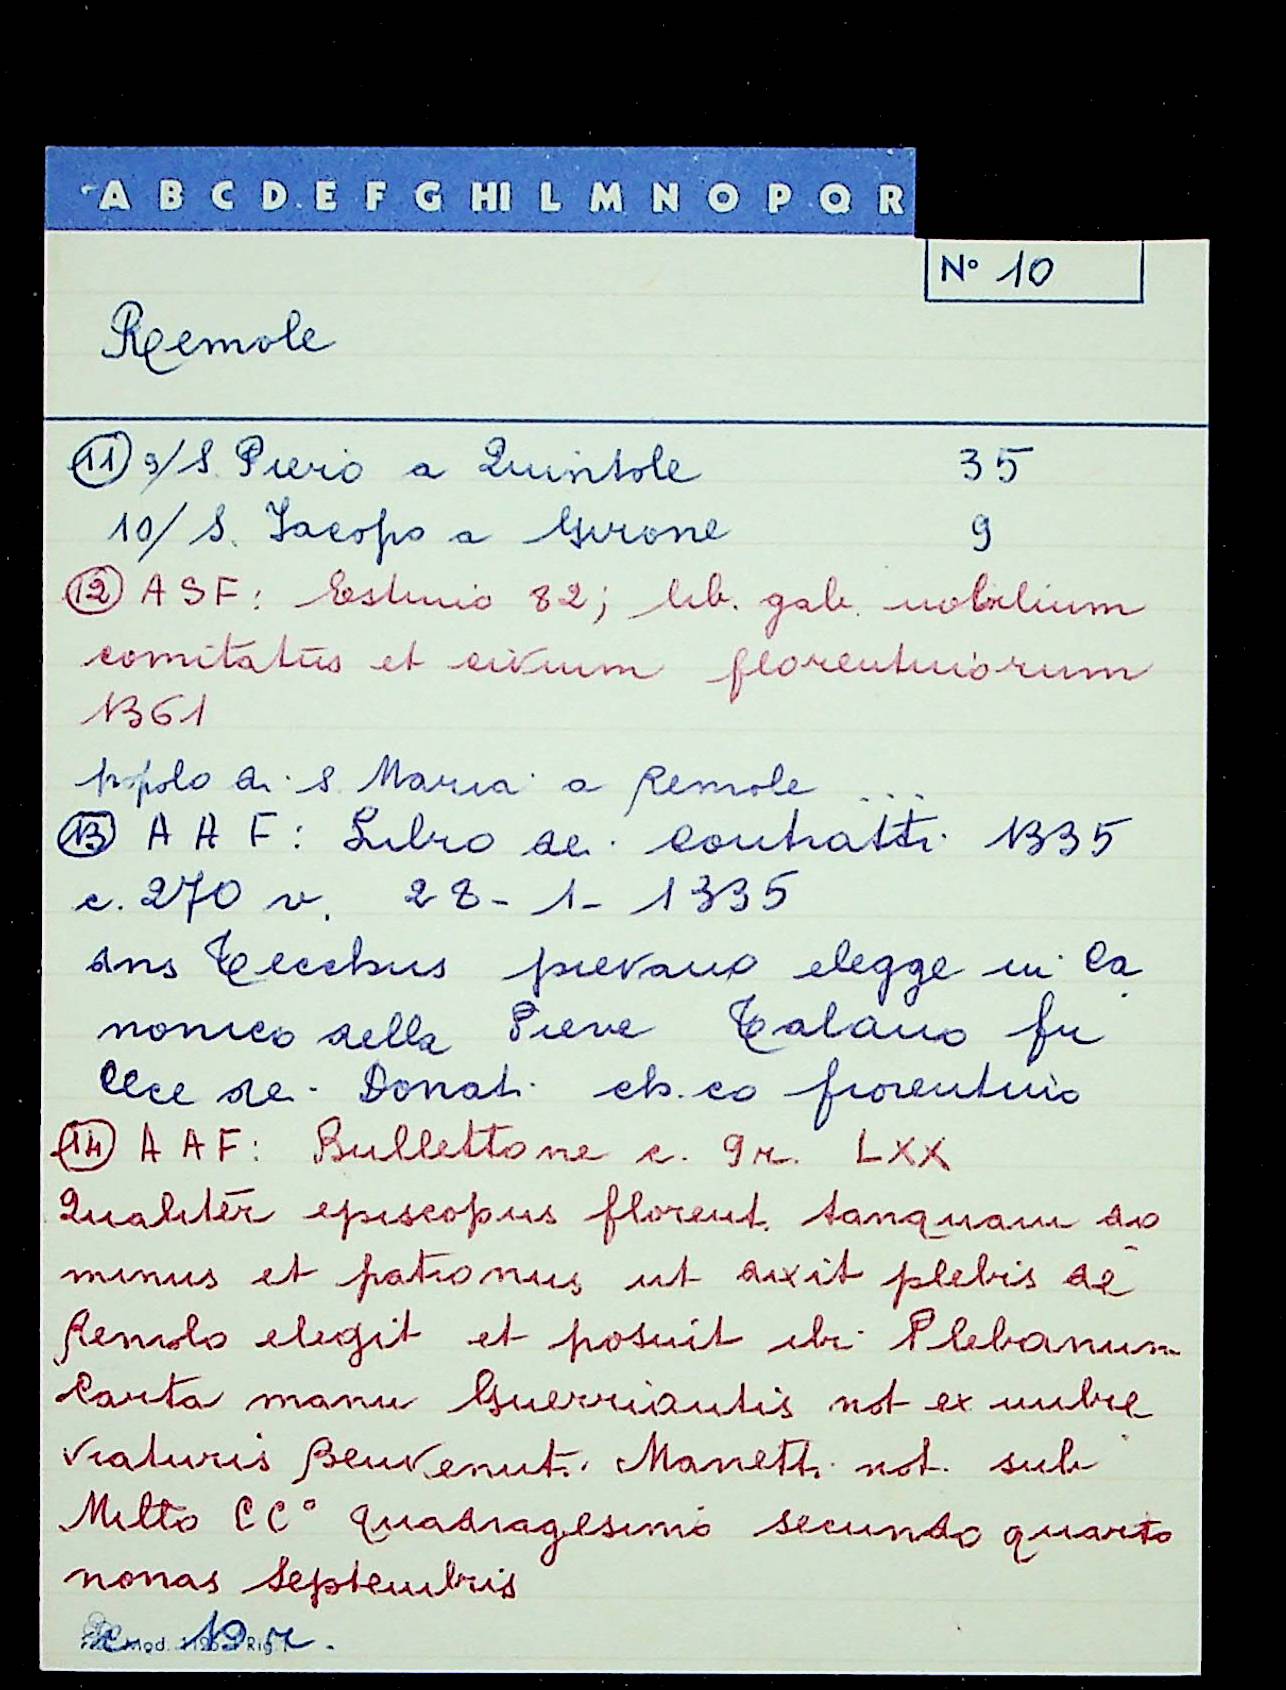 A B C D E F G HI L M N O P Q R
N° 10
Remole
11 9/ S. Piero a Quintole 35
10/ S. Jacopo a Girone 9
12 ASF: Estimo 82; lib. gab. nobilium
comitatus et civium florentinorum
1361
popolo di S. Maria a Remole ...
13 A A F: Libro dei contratti 1335
c. 270 v. 28-1-1335
dns Cecchus pievano elegge in Ca
nonico della Pieve Talano fu
dei Donati ch.co fiorentino
14 A A F: Bullettone c. 9 r. LXX
Qualiter episcopus florent. tanquam do
minus et patronus ut dixit plebis de
Remolo elegit et posuit ibi Plebanum
Carta manu Guerriantis not ex imbre
viaturis Benvenuti Manetti not. sub
Mill.o CC° quadragesimo secundo quarto
nonas Septembris
c. 19 r.